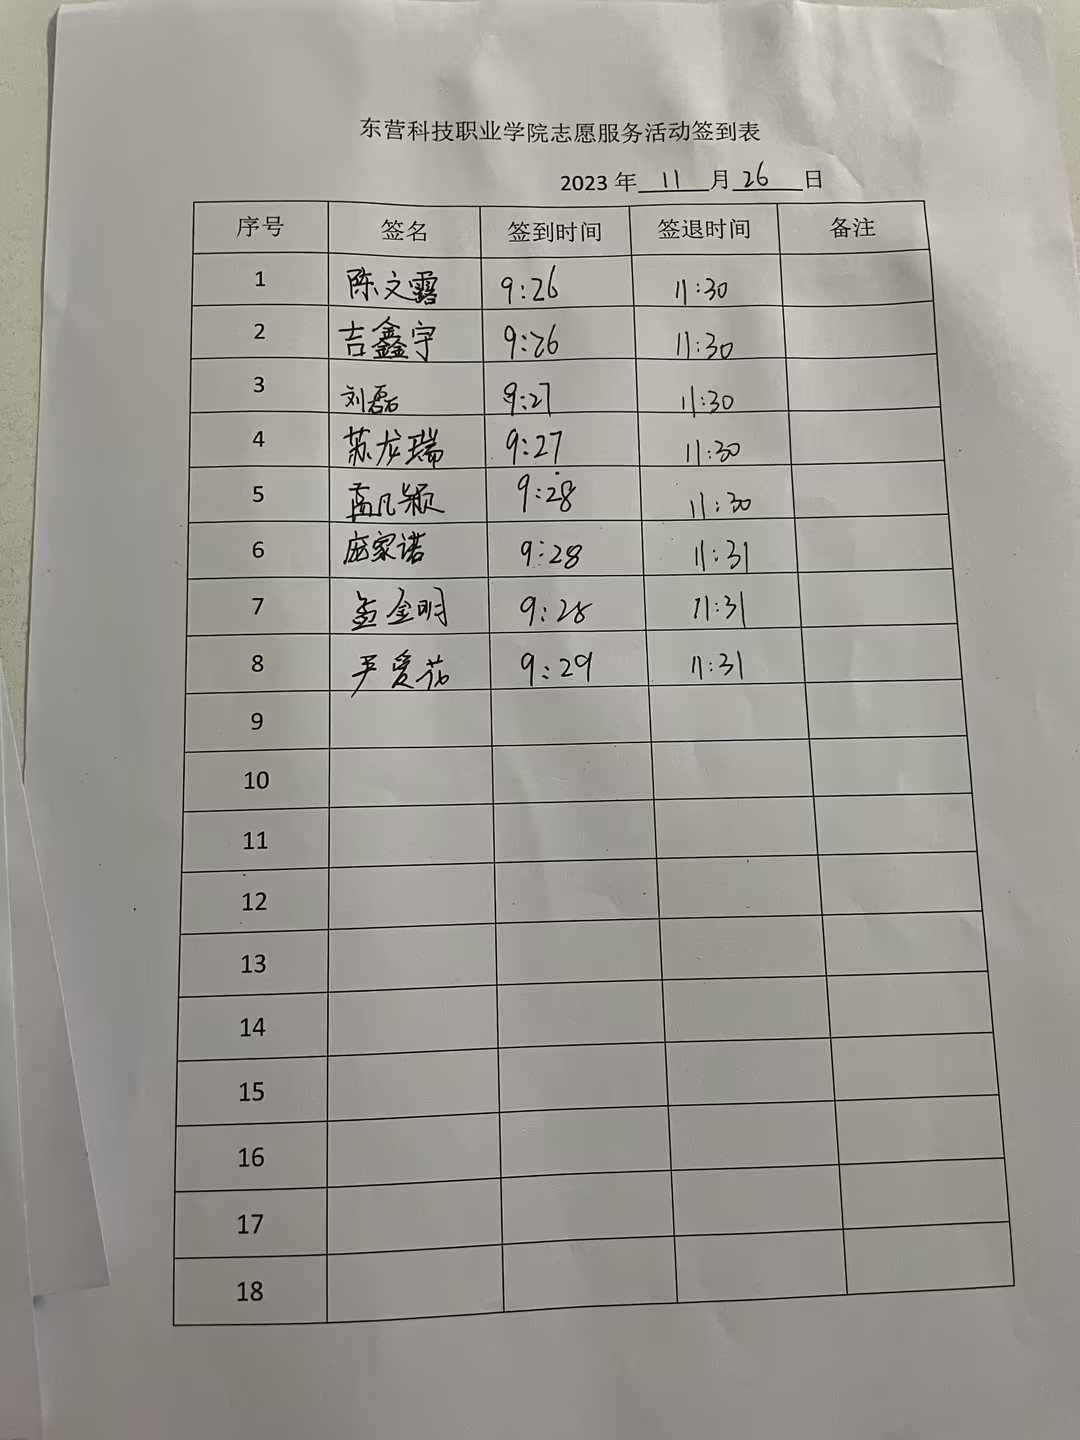 东营科技职业学院志愿服务活动签到表
2023 年 11 月 26 日
序号 签名 签到时间 签退时间 备注
1 陈文露 9:26 11:30
2 吉鑫宇 9:26 11:30
3 刘磊 9:27 11:30
4 苏龙瑞 9:27 11:30
5 9:28 11:30
6 庞家诺 9:28 11:31
7 孟金明 9:28 11:31
8 9:29 11:31
9
10
11
12
13
14
15
16
17
18